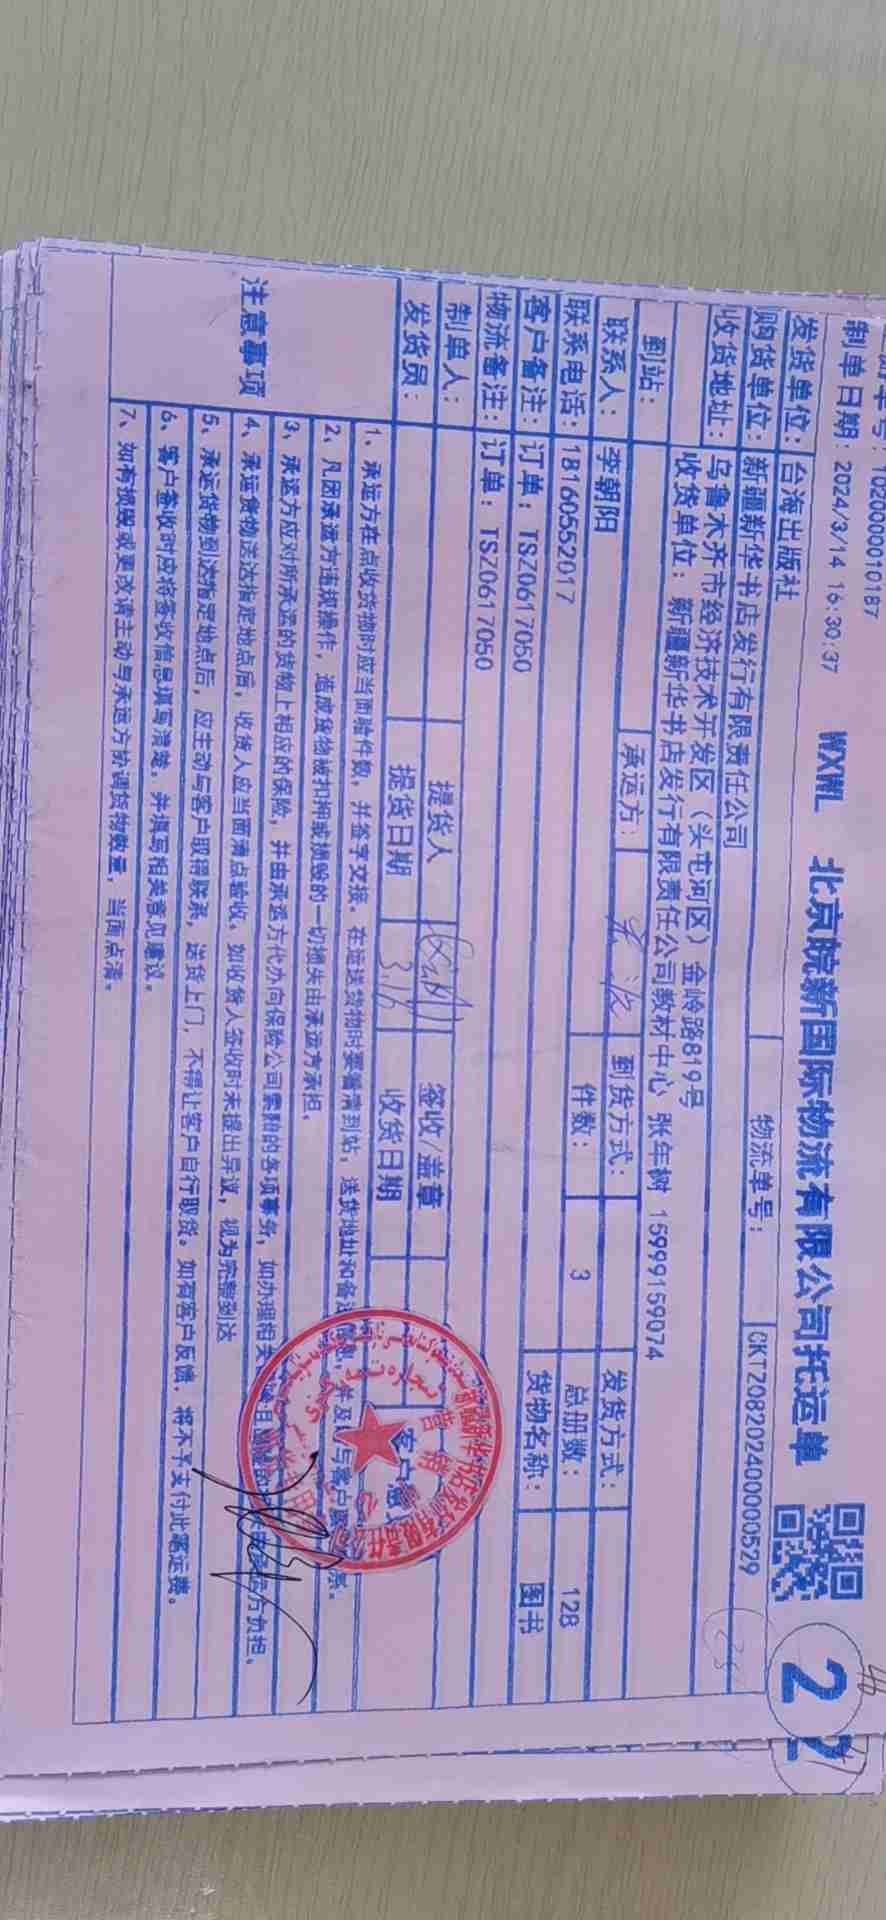 1020000010187
制单日期：2024/3/14 16:30:37
WXWL 北京皖新国际物流有限公司托运单
2
2
发货单位：台海出版社
物流单号：
CKTZ082024000000529
购货单位：新疆新华书店发行有限责任公司
收货地址：乌鲁木齐市经济技术开发区（头屯河区）金岭路819号
收货单位：新疆新华书店发行有限责任公司教材中心 张年树 15999159074
到站：
承运方：
到货方式：
发货方式：
联系人：李朝阳
件数：3
总册数：128
联系电话：18160552017
货物名称：图书
客户备注：订单：TSZ0617050
物流备注：订单：TSZ0617050
制单人：
提货人
签收/盖章
发货员：
提货日期 3.16
收货日期
注意事项
1、承运方在点收货物时应当面验件数，并签字交接。在运送货物时要看清到站，送货地址和备注
2、凡因承运方违规操作，造成货物被扣押或损毁的一切损失由承运方承担。
3、承运方应对所承运的货物上相应的保险，并由承运方代办向保险公司索赔的各项事务，如办理相关
4、承运货物送达指定地点后，收货人应当面清点验收，如收货人签收时未提出异议，视为完整到达
5、承运货物到达指定地点后，应主动与客户取得联系，送货上门，不得让客户自行取货。如有客户反馈，将不予支付此笔运费。
6、客户签收时应将签收信息填写清楚。并填写相关意见建议。
7、如有损毁或更改请主动与承运方协调货物数量，当面点清。